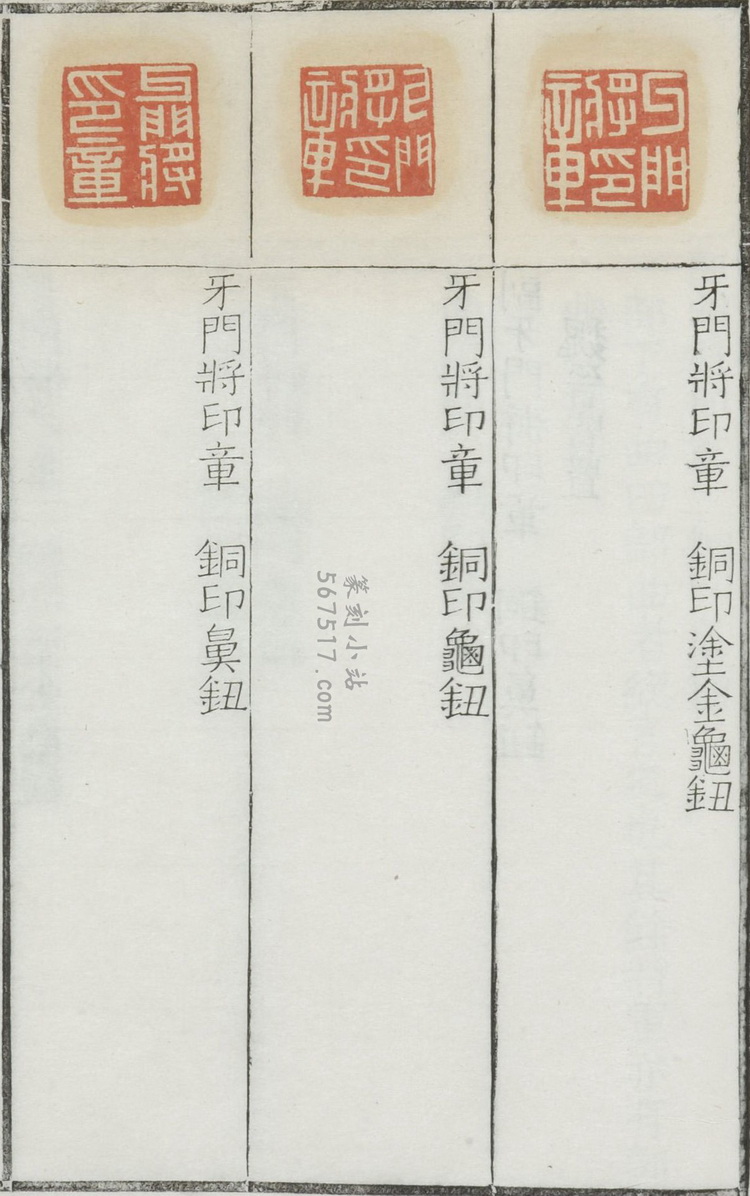 牙門將印章
牙門將印章　銅印塗金龜鈕
牙門將印章
牙門將印章　銅印龜鈕
牙門將印章
牙門將印章　銅印鼻鈕
篆刻小站
567517.com